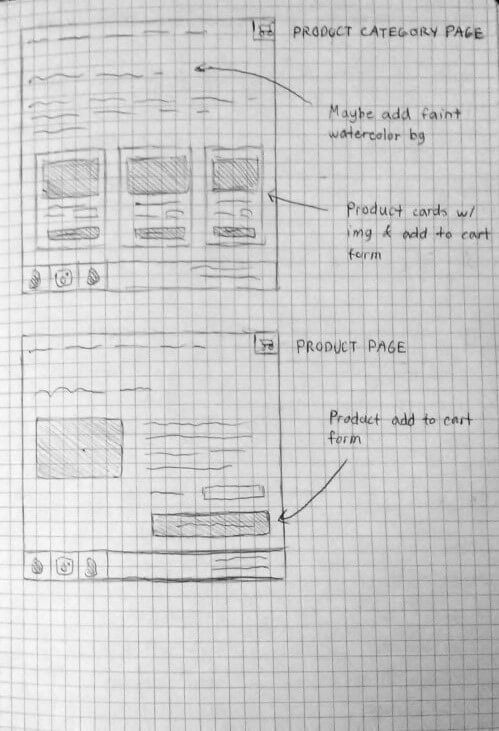 PRODUCT CATEGORY PAGE
Maybe add faint
watercolor bg
Product cards w/
img & add to cart
form
PRODUCT PAGE
Product add to cart
form